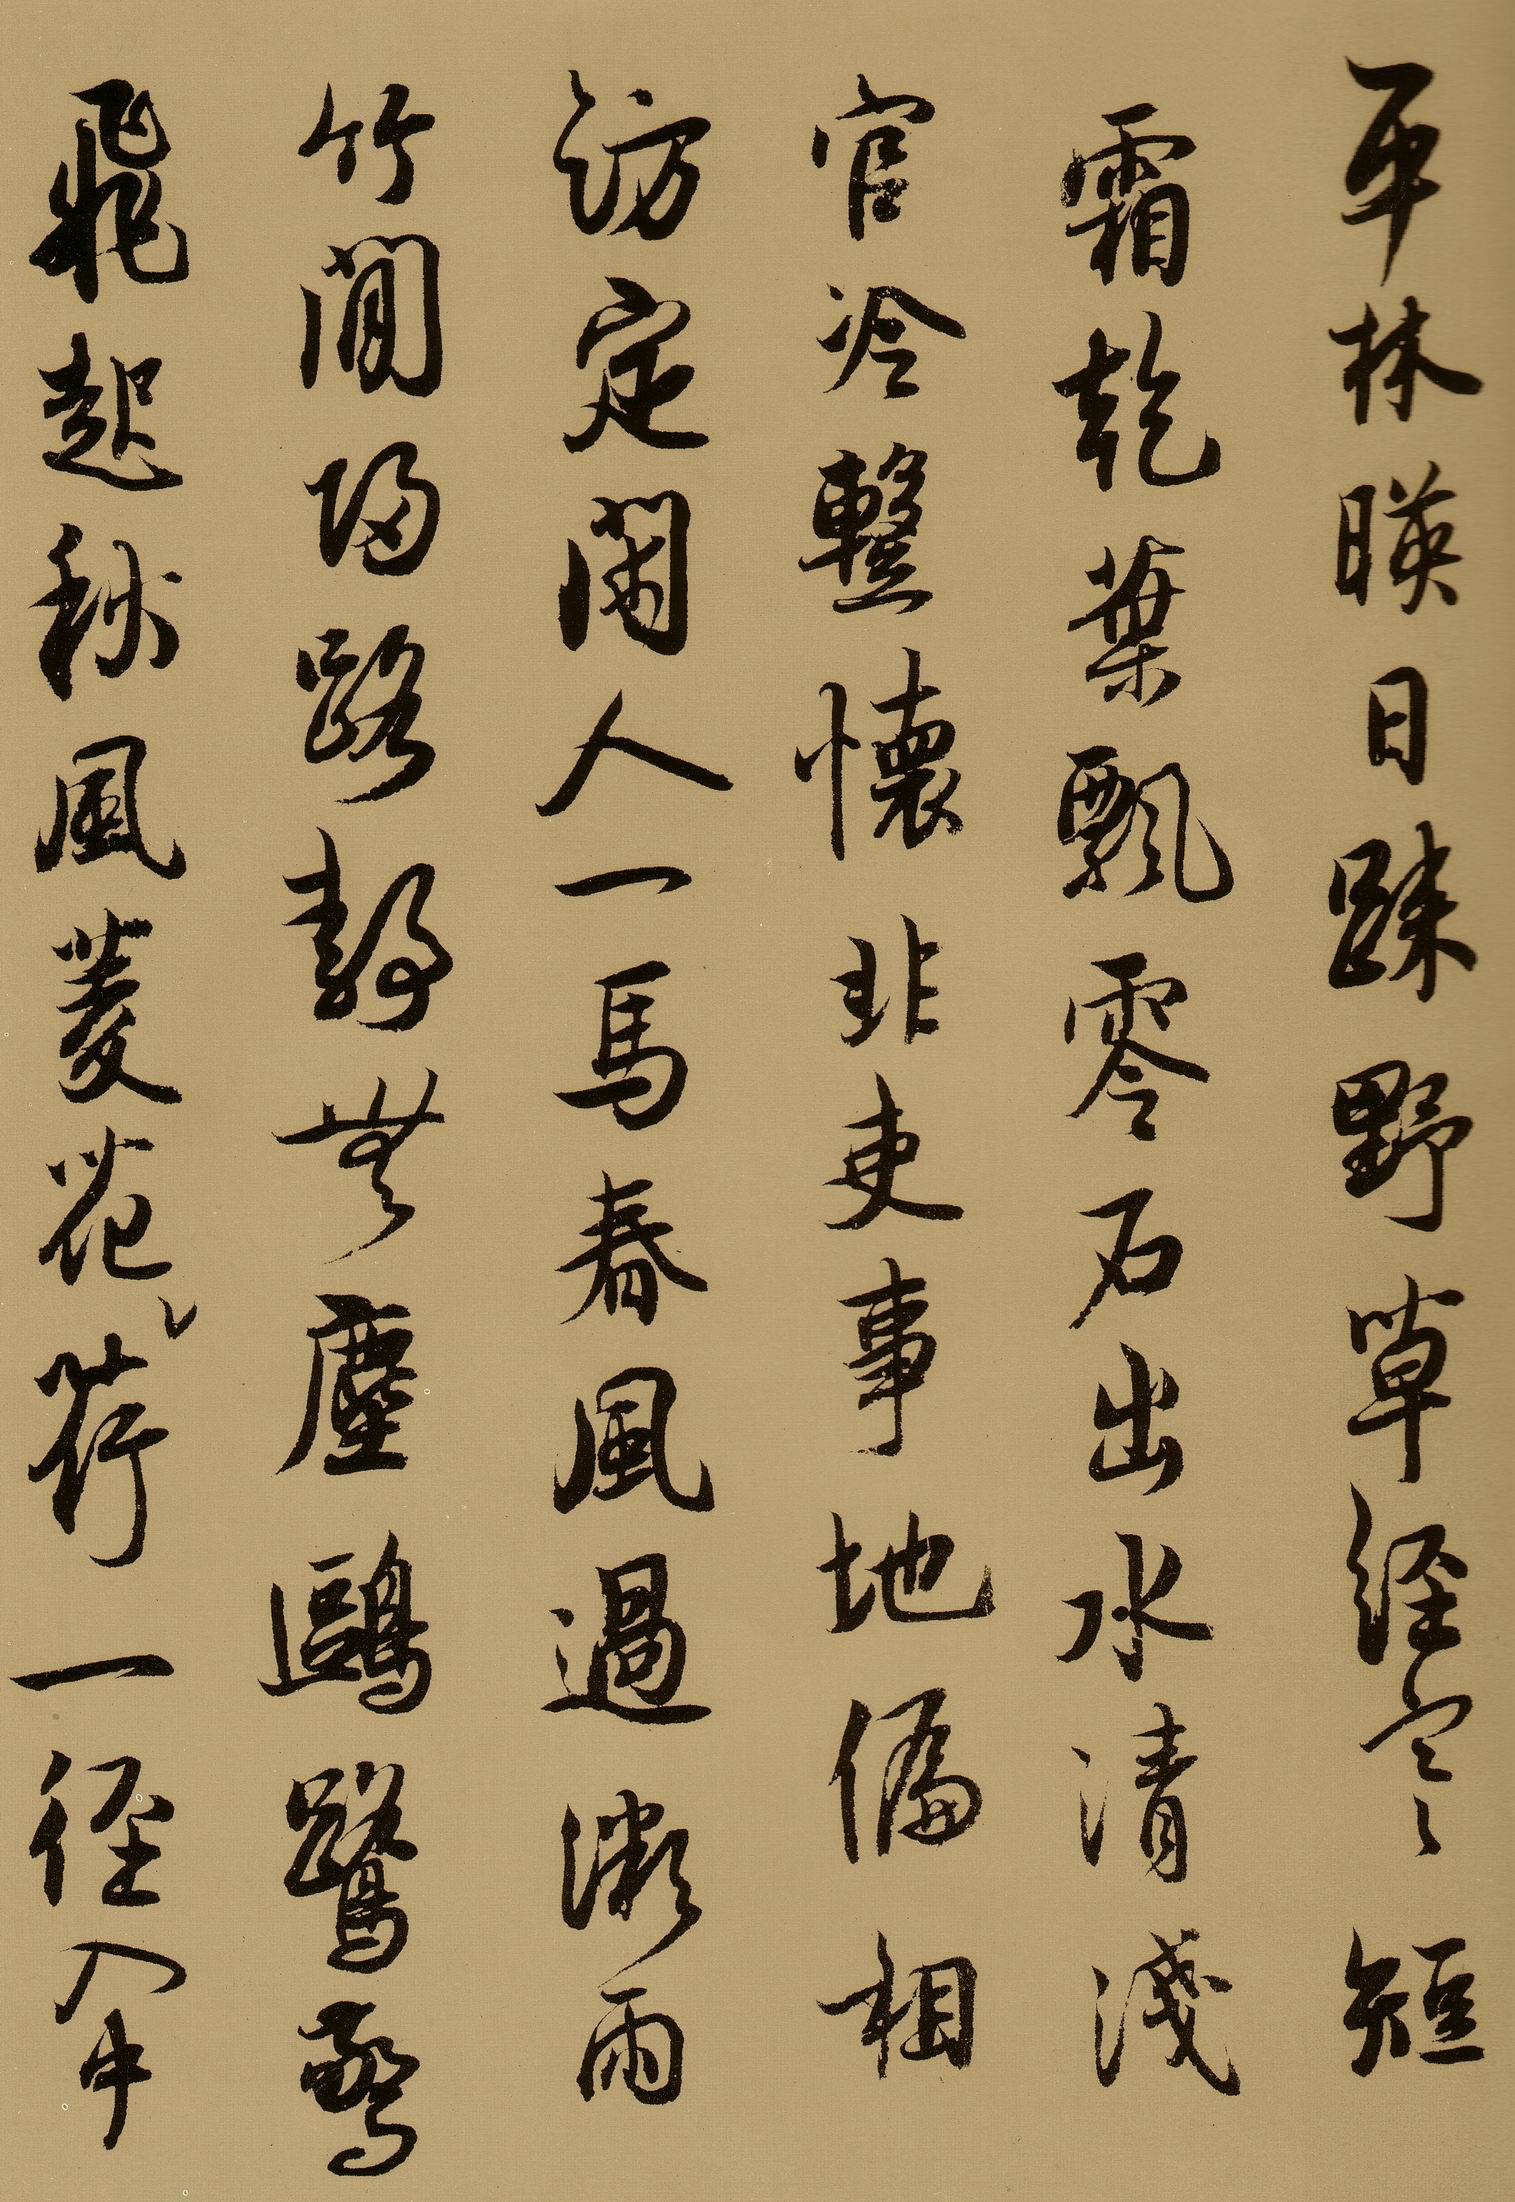 平林暎日踈野草经寒短
霜乾葉飄零石出水清淺
官冷整懷非吏事地偏相
訪定閑人一馬春風過微雨
竹間歸路静無塵鷗鷺驚
飛起秋風菱花荷一径入中